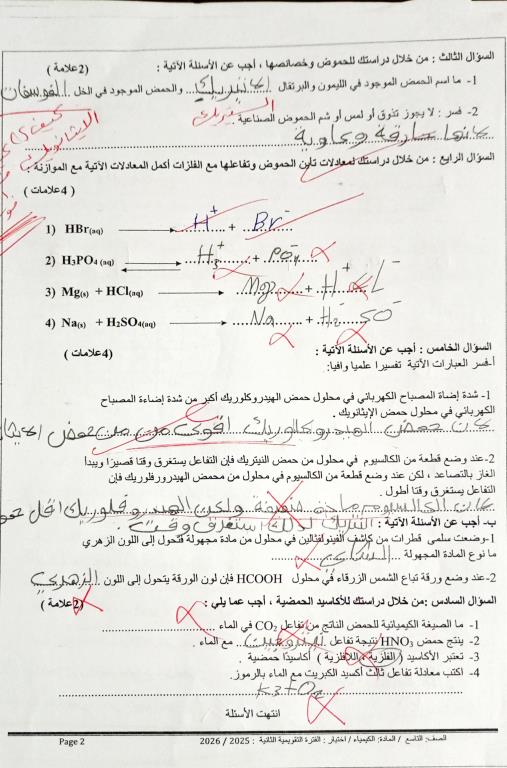 السؤال الثالث : من خلال دراستك للحموض وخصائصها ، أجب عن الأسئلة الآتية : (2علامة )
1- ما اسم الحمض الموجود في الليمون والبرتقال ................ والحمض الموجود في الخل
السيتريك
2- فسر : لا يجوز تذوق أو لمس أو شم الحموض الصناعية
كانها حارقة وكاوية
السؤال الرابع : من خلال دراستك لمعادلات تأين الحموض وتفاعلها مع الفلزات أكمل المعادلات الآتية مع الموازنة :
( 4علامات )
1) HBr(aq) → H+ + Br-
2) H3PO4 (aq) ⇄ H3+ + PO4-
3) Mg(s) + HCl(aq) → Mg2 + H+ cL-
4) Na(s) + H2SO4(aq) → Na + H2 SO-
السؤال الخامس : أجب عن الأسئلة الآتية : (4علامات )
أ-فسر العبارات الآتية تفسيرا علميا وافيا:
1- شدة إضاءة المصباح الكهربائي في محلول حمض الهيدروكلوريك أكبر من شدة إضاءة المصباح
الكهربائي في محلول حمض الإيثانويك .
كان حمض الهيدروكلوريك اقوى من من حمض
2-عند وضع قطعة من الكالسيوم في محلول من حمض النيتريك فإن التفاعل يستغرق وقتا قصيرا ويبدأ
الغاز بالتصاعد ، لكن عند وضع قطعة من الكالسيوم في محلول من محمض الهيدروفلوريك فإن
التفاعل يستغرق وقتا أطول .
كان الكالسيوم مادة ولكن الهيدروفلوريك اقل
النتريك لذلك استغرق وقت .
ب- أجب عن الأسئلة الآتية :
1-وضعت سلمى قطرات من كاشف الفينولفثالين في محلول من مادة مجهولة فتحول إلى اللون الزهري
ما نوع المادة المجهولة
2-عند وضع ورقة تباع الشمس الزرقاء في محلول HCOOH فإن لون الورقة يتحول إلى اللون الزهري
السؤال السادس :من خلال دراستك للأكاسيد الحمضية ، أجب عما يلي : (2علامة )
1- ما الصيغة الكيميائية للحمض الناتج من تفاعل CO2 في الماء ................
2- ينتج حمض HNO3 نتيجة تفاعل ................ مع الماء .
3- تعتبر الأكاسيد ( الفلزية ، اللافلزية ) أكاسيدًا حمضية .
4- اكتب معادلة تفاعل ثالث أكسيد الكبريت مع الماء بالرموز.
K3+O2
انتهت الأسئلة
الصف: التاسع / المادة: الكيمياء / اختبار : الفترة التقويمية الثانية : 2025 / 2026 Page 2